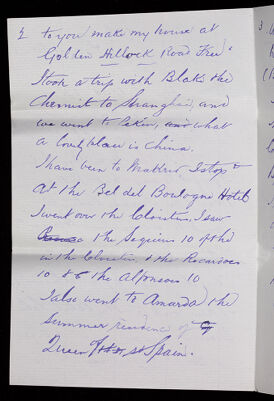 2 to you make my house at
Golden Hillock Road Free
I took a trip with Blake the
Chemist to Shanghai, and
we went to Pekin, what
a lovely place is China.
I have been to Madrid, I stop
at the Bel del Boulogne Hotel
I went over the Cloisters, I saw
the Seguiers 10 of the
in the Cloisters & the Recardoes
10 & 6 the Alfonsoes 10
I also went to Amarda the
Summer residence of
Queen of Spain.
3